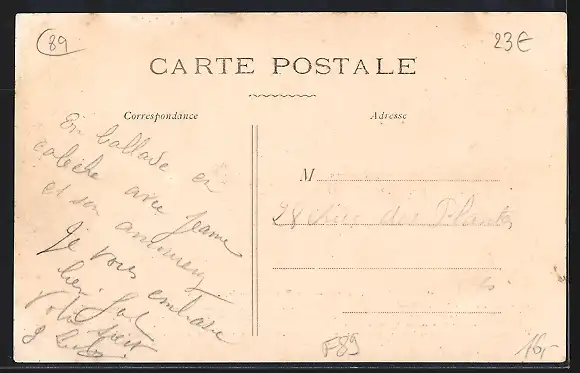 89
23€
CARTE POSTALE
Correspondance
Adresse
En ballade en
calèche avec Jeanne
et son amoureux
Je vous embrasse
bien
M
28 Rue des Plantes
F89
16,-